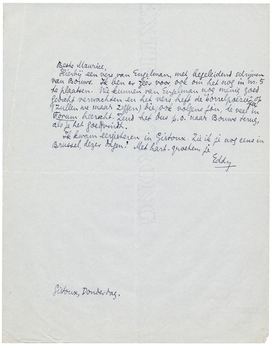 Beste Maurice,
Hierbij een vers van Engelman, met begeleidend schrijven
van Bouws. Ik ben er zéér voor ook om het nog in no. 5
te plaatsen. We kunnen van Engelman nog menig goed
gedicht verwachten en het vers heeft de
zullen we maar zeggen die ons volgens jou, te veel in
Forum heerscht. Zend het dus p.o. naar Bouws terug,
als je het goedvindt.
Ik kwam eergisteren in Gistoux. Zie ik je nog eens in
Brussel, dezer dagen? Met hart. groeten je
Eddy
Gistoux, Donderdag.